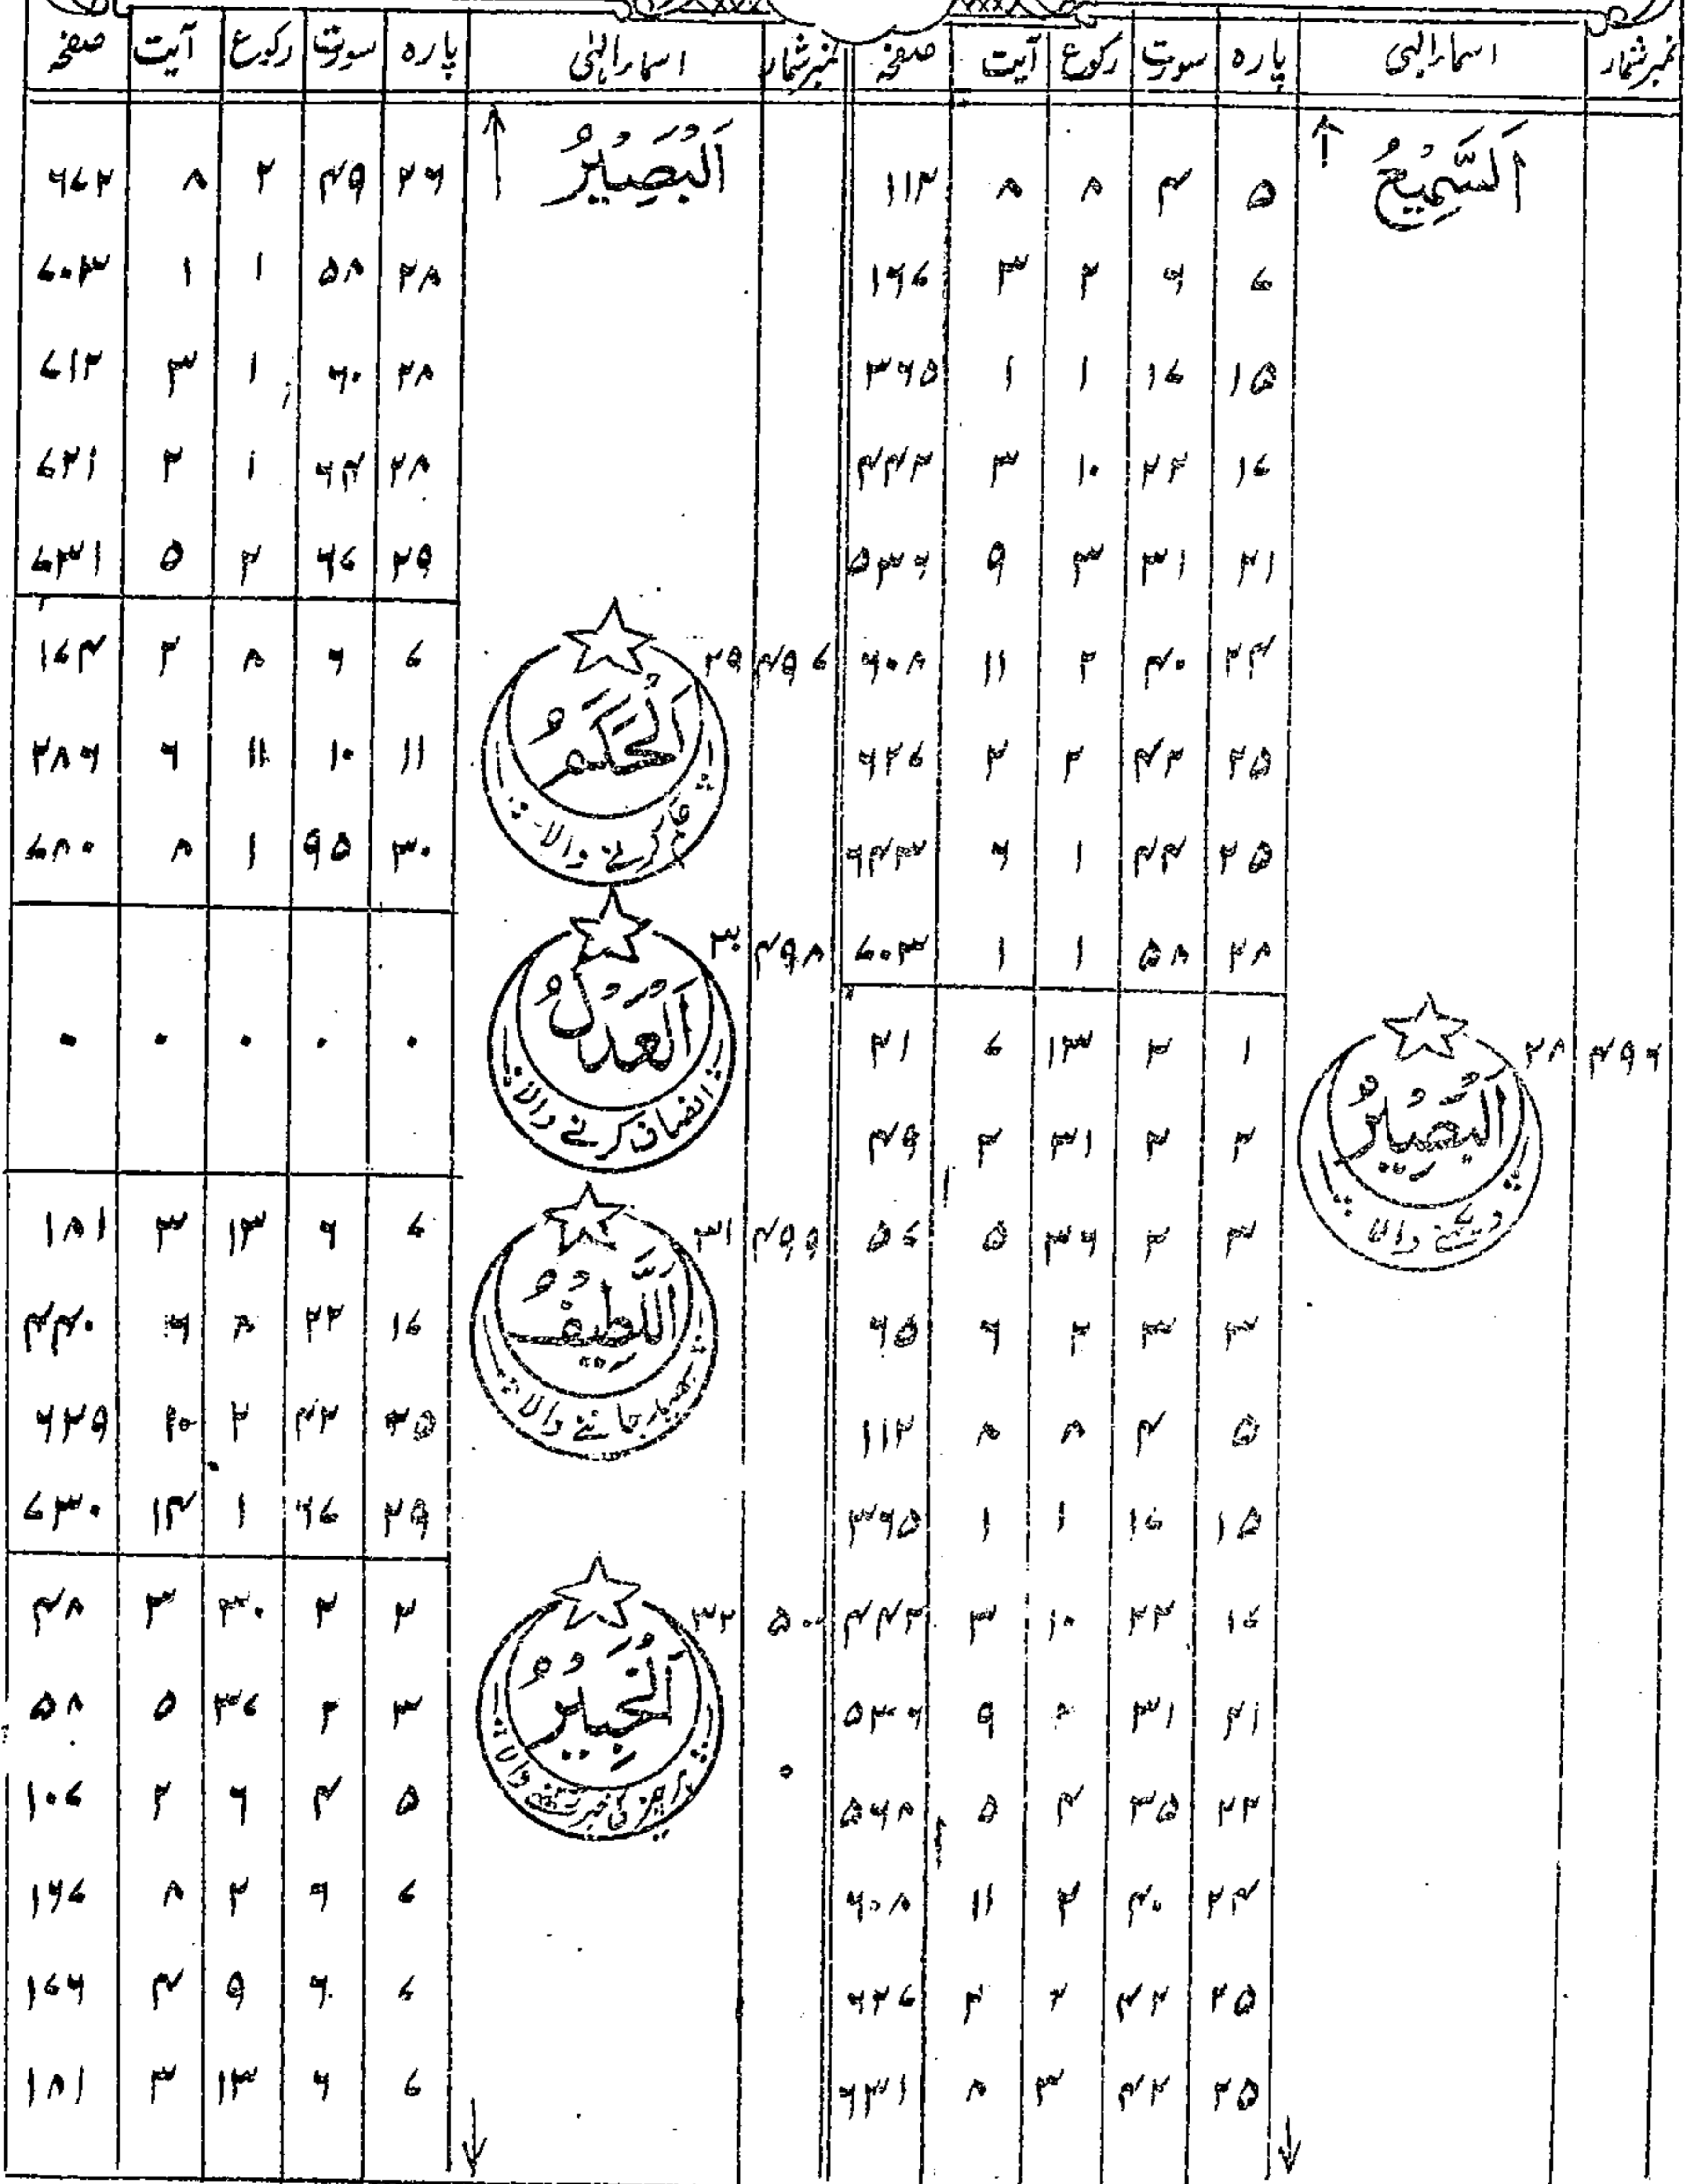 نمبرشمار اسماء الہی پارہ سورت رکوع آیت صفحہ
اَلسَّمِیْعُ ۵ ۴ ۸ ۸ ۱۱۲
۷ ۶ ۲ ۳ ۱۶۷
۱۵ ۱۷ ۱ ۱ ۳۶۵
۱۷ ۲۲ ۱۰ ۳ ۴۴۲
۲۱ ۳۱ ۳ ۹ ۵۳۶
۲۴ ۴۰ ۲ ۱۱ ۶۰۸
۲۵ ۴۲ ۲ ۲ ۶۲۷
۲۵ ۴۴ ۱ ۶ ۶۴۳
۲۸ ۵۸ ۱ ۱ ۷۰۳
۴۹۶ ۲۸ اَلْبَصِیْرُ ۱ ۲ ۱۳ ۷ ۲۱
دیکھنے والا
۲ ۲ ۳۱ ۲ ۴۹
۳ ۲ ۳۶ ۵ ۵۷
۳ ۳ ۲ ۶ ۶۵
۵ ۴ ۸ ۸ ۱۱۲
۱۵ ۱۷ ۱ ۱ ۳۶۵
۱۷ ۲۲ ۱۰ ۳ ۴۴۲
۲۱ ۳۱ ۹ ۵۳۶
۲۲ ۳۵ ۴ ۵ ۵۶۸
۲۴ ۴۰ ۲ ۱۱ ۶۰۸
۲۵ ۴۲ ۲ ۲ ۶۲۷
۲۵ ۴۲ ۳ ۸ ۶۳۱
نمبرشمار اسماء الہی پارہ سورت رکوع آیت صفحہ
اَلْبَصِیْرُ ۲۶ ۴۹ ۲ ۸ ۶۷۲
۲۸ ۵۸ ۱ ۱ ۷۰۳
۲۸ ۶۰ ۱ ۳ ۷۱۲
۲۸ ۶۴ ۱ ۲ ۷۲۱
۲۹ ۶۷ ۲ ۵ ۷۳۱
۴۹۷ ۲۹ اَلْحَکَمُ ۷ ۶ ۸ ۲ ۱۷۴
کرنے والا
۱۱ ۱۰ ۱۱ ۶ ۲۸۶
۳۰ ۹۵ ۱ ۸ ۷۸۰
۴۹۸ ۳۰ اَلْعَدْلُ ۰ ۰ ۰ ۰ ۰
انصاف کرنے والا
۴۹۹ ۳۱ اَللَّطِیْفُ ۷ ۶ ۱۳ ۳ ۱۸۱
جاننے والا
۱۷ ۲۲ ۸ ۶ ۴۴۰
۲۵ ۴۲ ۲ ۱۰ ۶۲۹
۲۹ ۶۷ ۱ ۱۴ ۷۳۰
۵۰۰ ۳۲ اَلْخَبِیْرُ ۲ ۲ ۳۰ ۳ ۴۸
والا
۳ ۲ ۳۷ ۵ ۵۸
۵ ۴ ۶ ۲ ۱۰۷
۷ ۶ ۲ ۸ ۱۶۷
۷ ۶ ۹ ۴ ۱۷۶
۷ ۶ ۱۳ ۳ ۱۸۱